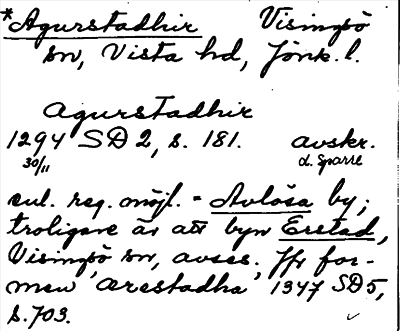 *Agurstadhir Visingsö
sn, Vista hd, Jönk. l.
Agurstadhir
1294 SD 2, s. 181. avskr.
30/11 d. Sparre
enl. reg. möjl. = Avlösa by;
troligare är att byn Erstad,
Visingsö sn, avses. Jfr for-
men arestadha 1347 SD 5,
s. 703.